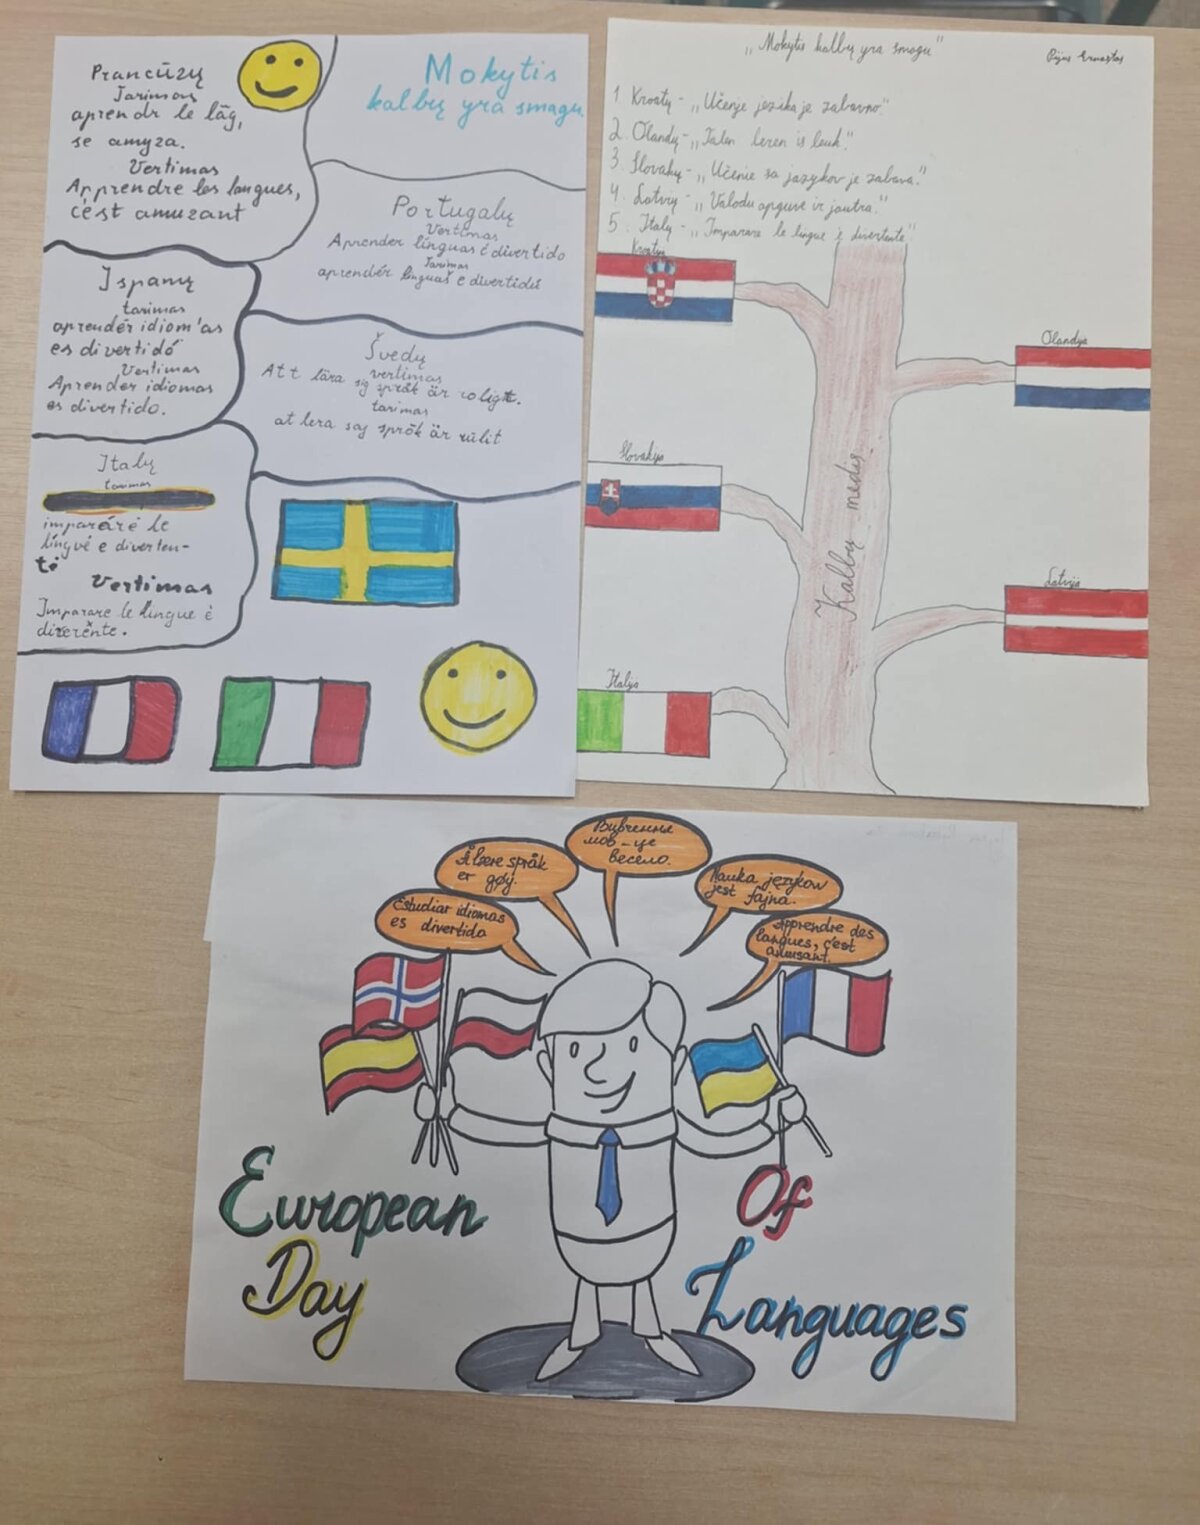 Prancūzų
Tarimas
aprendr le lãg,
se amyza.
Vertimas
Apprendre les langues,
c'est amuzant
Mokytis
kalbų yra smagu
Portugalų
Vertimas
Aprender línguas é divertido
Tarimas
aprendér linguas e divertidú
Ispanų
tarimas
aprendér idiom'as
es divertidó
Vertimas
Aprender idiomas
es divertido.
Švedų
vertimas
Att lära sig språk är roligt.
tarimas
at lera saj språk är rülit
Italų
tarimas
imparáré le
língvé e diverten-
té
Vertimas
Imparare le lingue è
diverènte.
„Mokytis kalbų yra smagu"
Pijus Ernestas
1 Kroatų - „Učenje jezika je zabavno."
2. Olandų - „Talen leren is leuk."
3. Slovakų - „Učenie sa jazykov je zábava."
4. Latvių - „Valodu apguve ir jautra."
5. Italų - „Imparare le lingue è divertente."
Kroatija
Olandija
Slovakija
Kalbų medis
Latvija
Italija
Вивчення
мов - це
весело.
Å lære språk
er gøy.
Nauka języków
jest fajna.
Estudiar idiomas
es divertido
Apprendre des
langues, c'est
amusant.
European
Day
Of
Languages